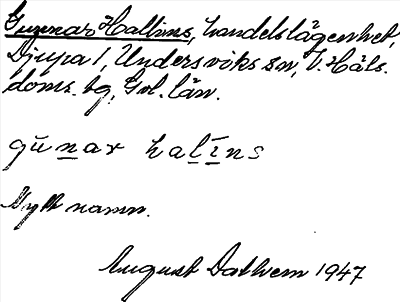 Gunnar Hallins, handelslägenhet,
Djupa 1, Undersviks sn, V. Häls.
doms. tg, Gvl. län.
gūnar halīns
Nytt namn.
August Dalhem 1947